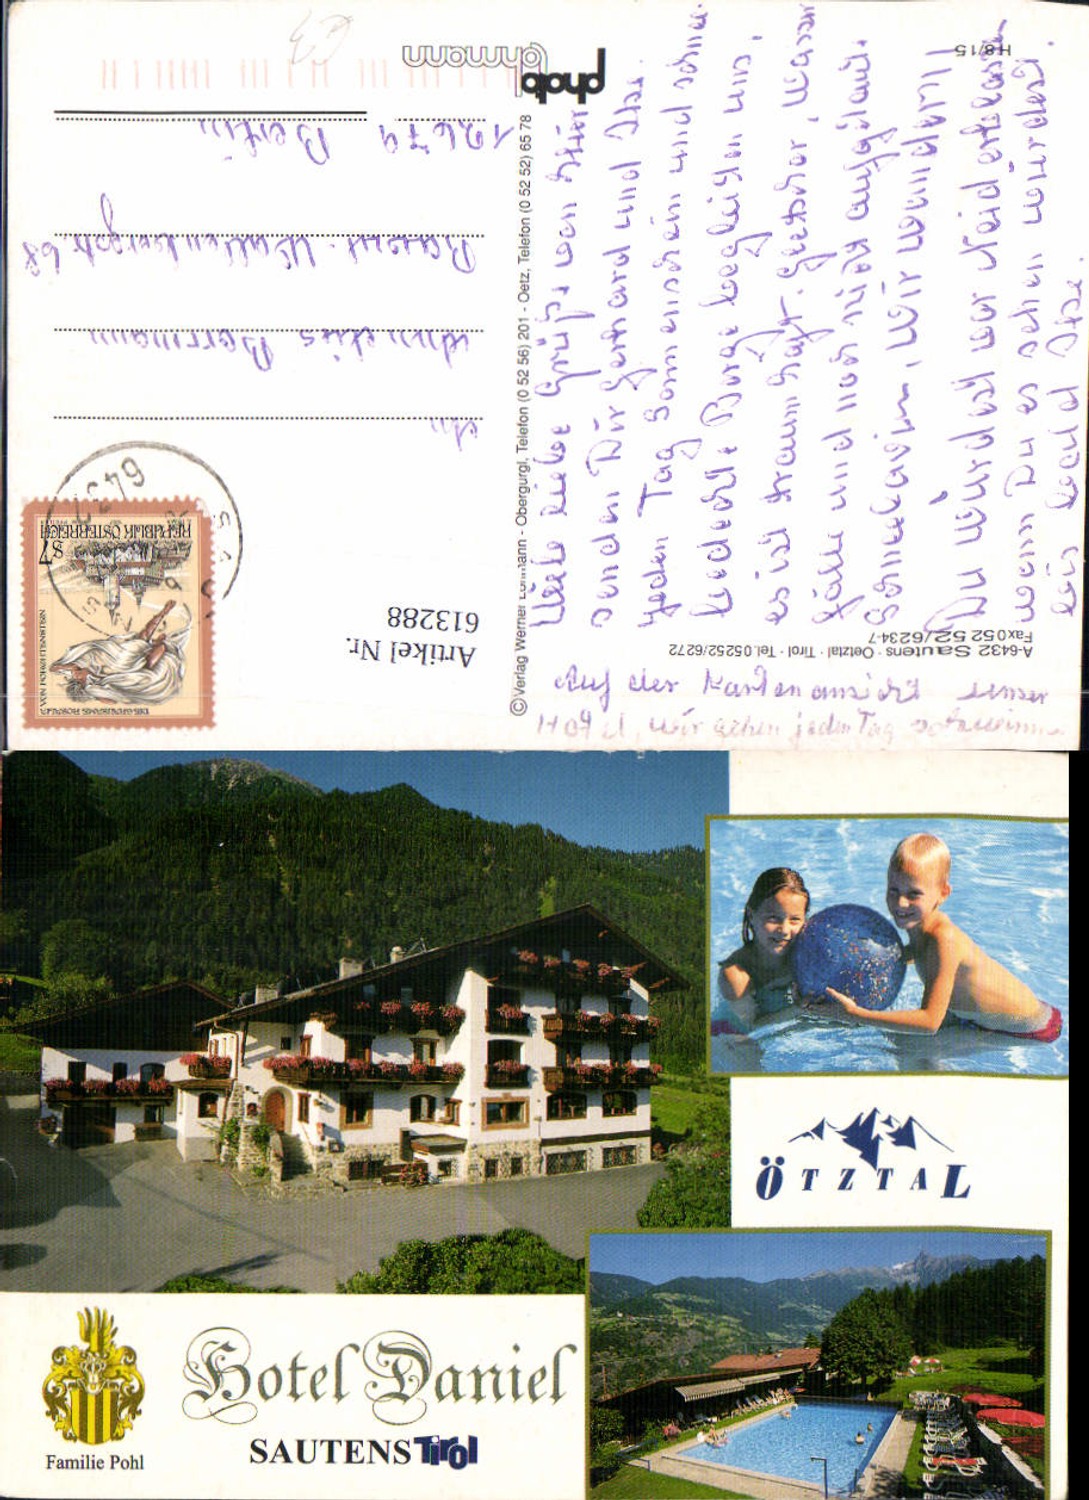 photo
Lohmann
H 8/15
12679 Berlin
Raoul-Wallenbergstr. 68
Berrmann
An
64
REPUBLIK ÖSTERREICH
S7
Artikel Nr.
613288
© Verlag Werner Lohmann - Obergurgl, Telefon (0 52 56) 201 - Oetz, Telefon (0 52 52) 65 78
Viele liebe Grüße von hier
senden Dir Gerhard und Ilse.
Jeden Tag Sonnenschein und schnee
bedeckte Berge begleiten uns,
es ist traumhaft. Gletscher, Wasser
fälle und noch nicht aufgetaut.
Schneelawinen, wir wandern!
Du würdest vor Neid erblassen
wenn Du es sehen würdest.
und Ilse.
A-6432 Sautens · Oetztal · Tirol · Tel. 05252/6272
Fax 052 52/6234-7
Auf der Kartenansicht unser
Hotel, wir gehen jeden Tag schwimmen
ÖTZTAL
Hotel Daniel
SAUTENS Tirol
Familie Pohl